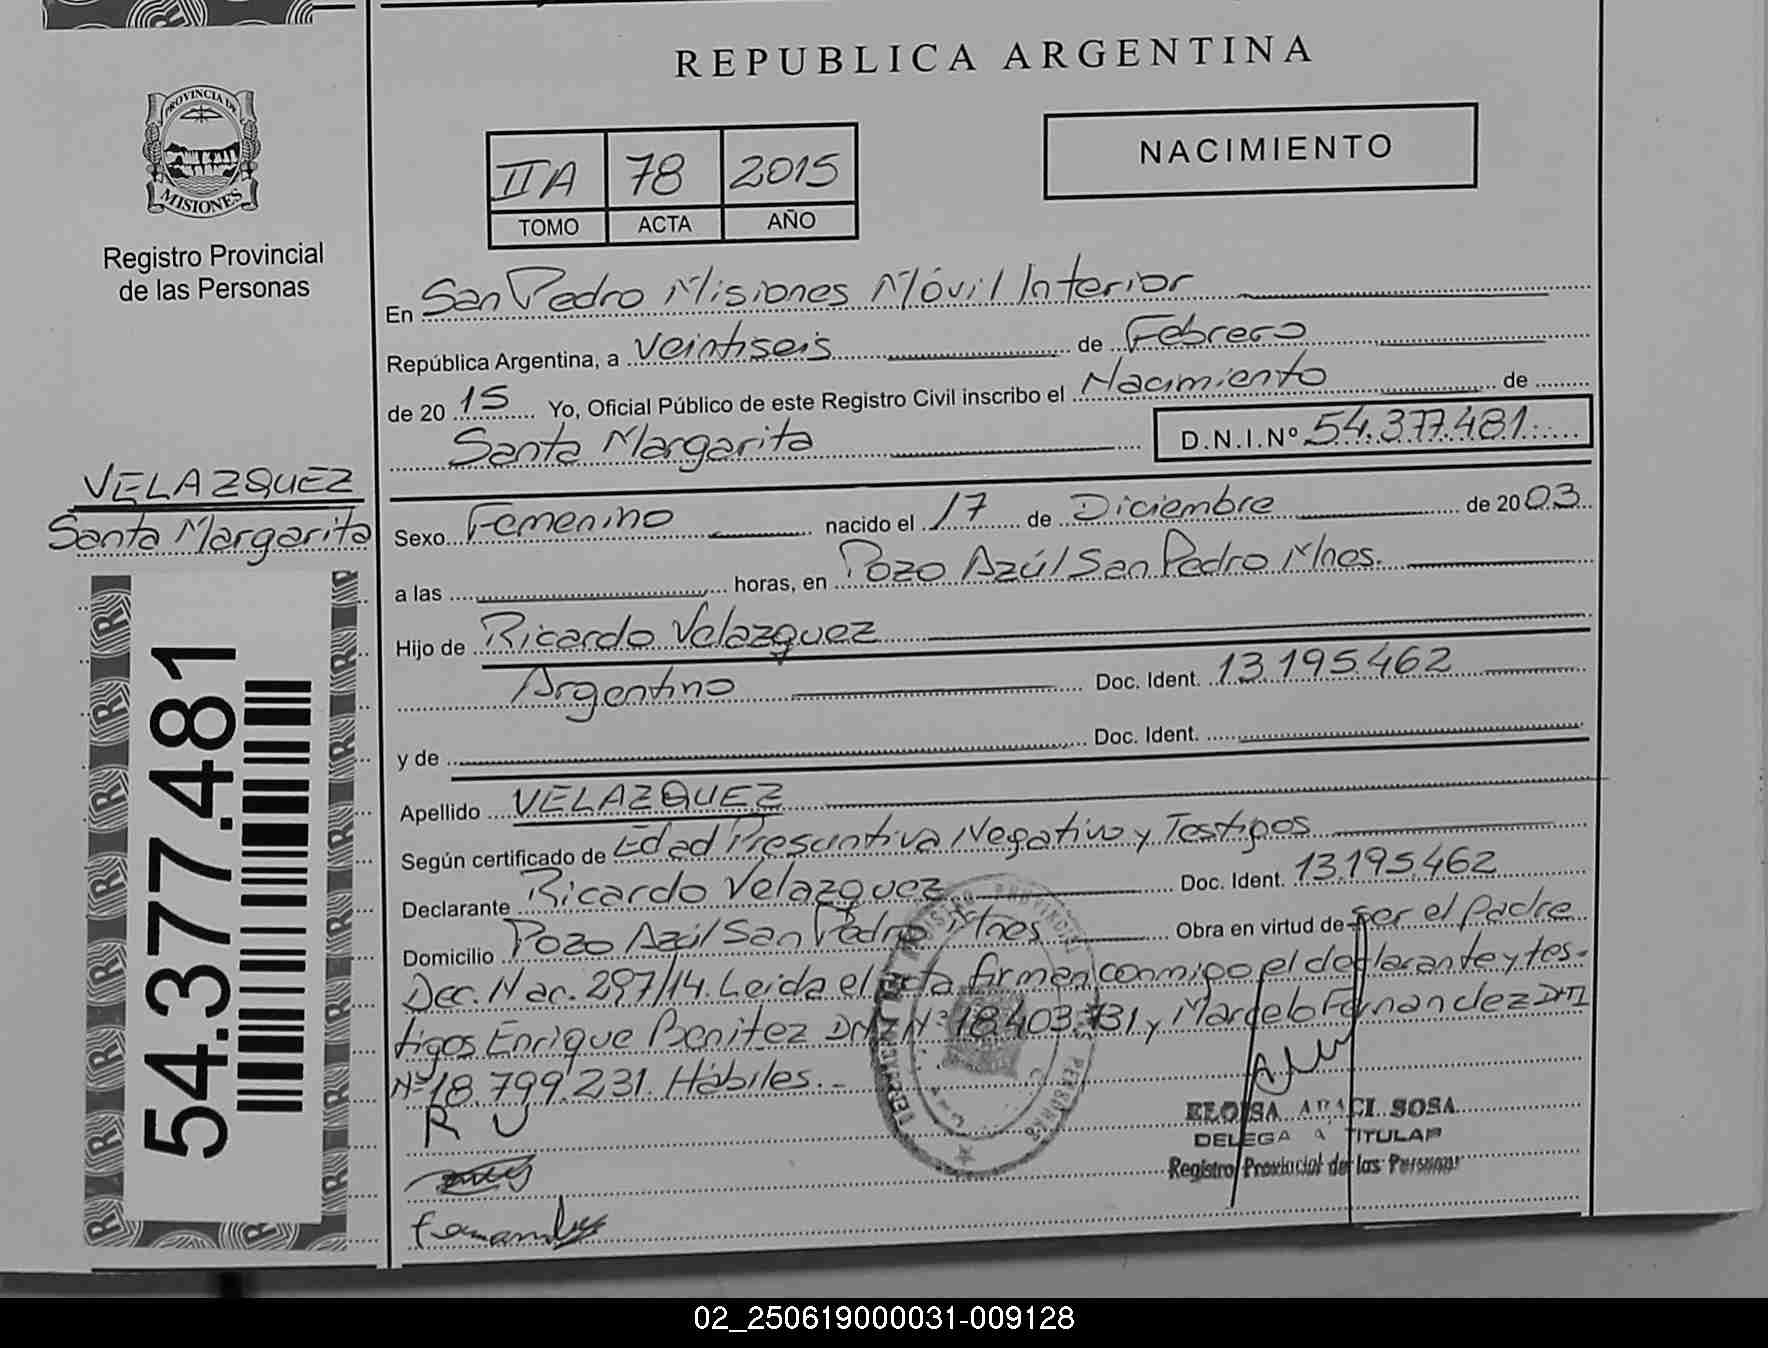 REPUBLICA ARGENTINA
PROVINCIA DE
MISIONES
Registro Provincial
de las Personas
IIA 78 2015
TOMO ACTA AÑO
NACIMIENTO
En San Pedro Misiones Móvil Interior
República Argentina, a veintiseis de Febrero
de 2015 Yo, Oficial Público de este Registro Civil inscribo el Nacimiento de
Santa Margarita D.N.I.Nº 54.377.481
VELAZQUEZ
Santa Margarita
54.377.481
Sexo Femenino nacido el 17 de Diciembre de 2003
a las horas, en Pozo Azúl San Pedro Mnes.
Hijo de Ricardo Velazquez
Argentino Doc. Ident. 13.195.462
y de Doc. Ident.
Apellido VELAZQUEZ
Según certificado de Edad Presuntiva Negativo y Testigos
Declarante Ricardo Velazquez Doc. Ident. 13.195.462
Domicilio Pozo Azúl San Pedro Mnes Obra en virtud de por el padre
Dec. Nac. 297/14. Leida el acta firman conmigo el declarante y tes-
tigos Enrique Benitez DNI Nº 18.403.731 y Marcelo Fernandez DNI
Nº 18.799.231. Hábiles.-
R V
Fernandez
ELOISA ARACI SOSA
DELEGADA TITULAR
Registro Provincial de las Personas
02_250619000031-009128